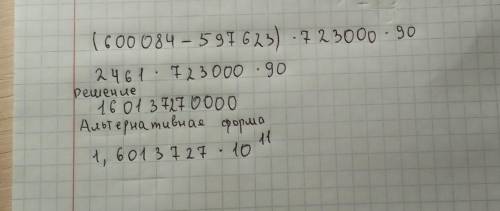 (600084 - 597623) · 723000 · 90
2461 · 723000 · 90
решение
160137270000
Альтернативная форма
1,6013727 · 10¹¹